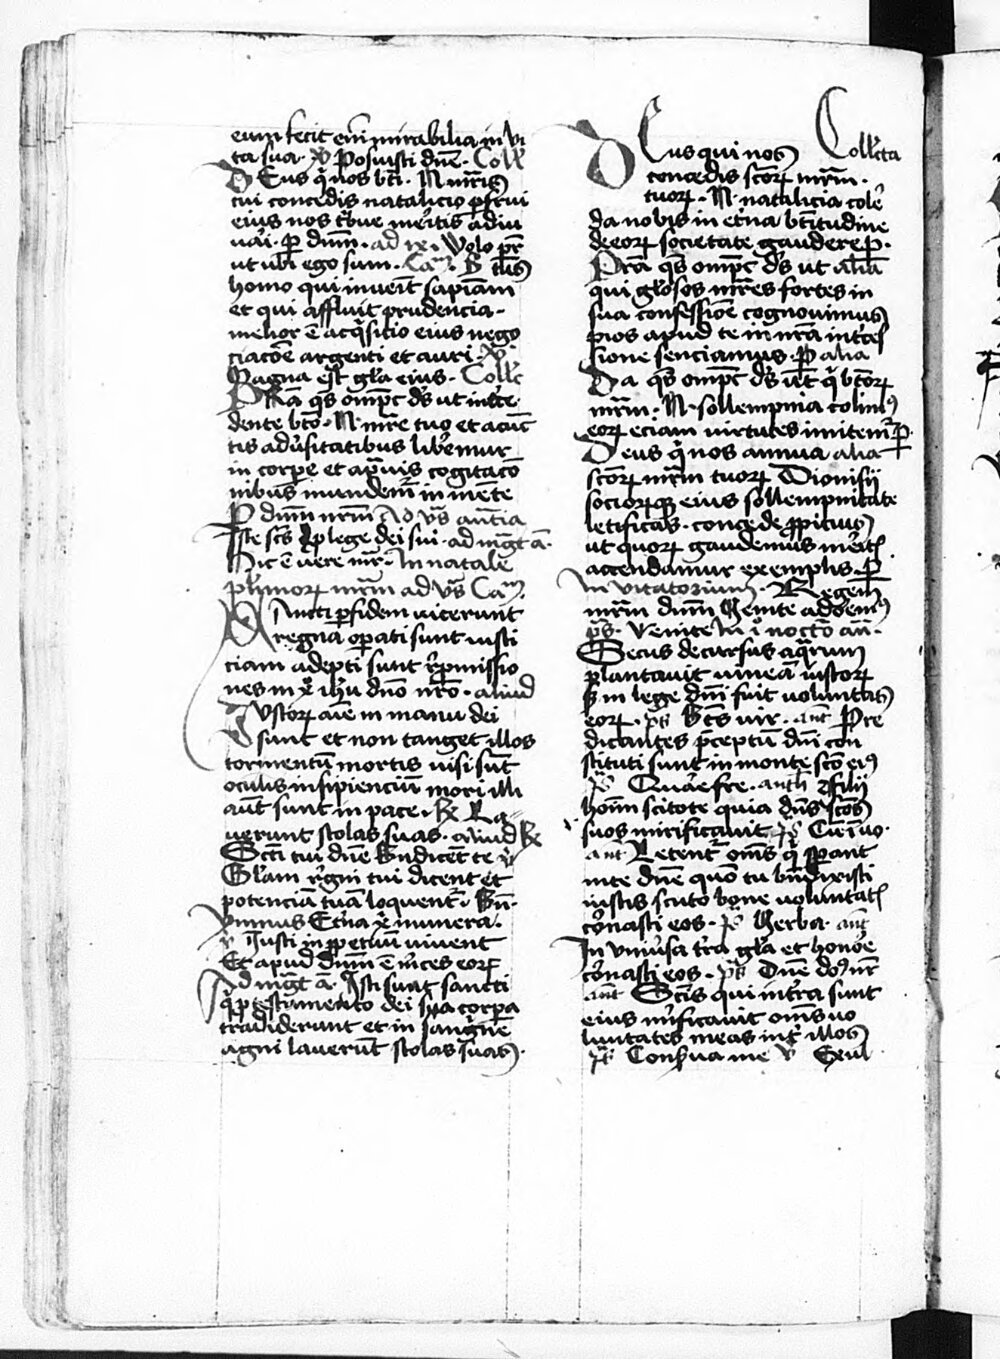 eum fecit em̄ mirabilia in vi
ta sua. v̄ Posuisti dn̄e. Coll̄
DEus q̄ nos bt̄i. N. mr̄is
tui concedis natalicio ꝑfrui
eius nos t̄bue meritis adiu
uari. ꝑ dn̄m. ad ix. Volo pr̄
ut ubi ego sum. Cap̄. Bt̄us
homo qui inuenit sapiam
et qui affluit prudencia.
melior ē acq̄sicio eius nego
ciacōe argenti et auri. v̄
Magna est gl̄a eius. Coll̄c
PResta q̄s omp̄c ds̄ ut int̄ce
dente bt̄o. N. mr̄e tuo et a cūc
tis adu̓sitatibus liberemur
in corꝑe et a prauis cogitacō
nibus mundem̄ in mente
ꝑ dn̄m nr̄m Ad vs̄ antia
Iste sc̄s ꝓ lege dei sui. ad mgt̄ a.
Hic ē vere mr̄. In natale
pl̄imoꝝ mr̄m ad vs̄ Cap̄.
SAncti ꝑ fidem vicerunt
regna operati sunt iusti
ciam adepti sunt repmissio
nes in xp̄o ihū dn̄o nr̄o. aliud
IUstoꝝ aīe in manu dei
sunt et non tanget illos
tormentū mortis visi sūt
oculis insipienciū mori illi
aut sunt in pace. ℟ La
verunt stolas suas. aliud ℟
Sc̄ti tui dn̄e Bn̄dicent te v̄
Gl̄am regni tui dicent et
potenciā tuā loquent̄. Bn̄.
ymnus Et̄na xp̄i munera.
v̄ Iusti in ꝑpetuū vivent
Et apud dn̄m ē merces eoꝝ
Ad mgt̄ a. Isti sunt sancti
q̄ ꝓ testamento dei sua corpa
tradiderunt et in sangwine
agni laverunt stolas suas.
DEus qui nos Collecta
concedis sc̄oꝝ mr̄m.
tuoꝝ. N. natalicia coler̄
da nobis in et̄na bt̄itudine
de eoꝝ societate gaudere ꝑ.
Pr̄a q̄s omp̄c ds̄ ut alia
qui gl̄osos mr̄es fortes in
sua confessione cognovimus
pios apud te in nr̄a int̄ces
sione senciamus. ꝑ alia
Da q̄s omp̄c ds̄ ut q̄ bt̄oꝝ
mr̄m. N. sollempnia colim9
eoꝝ eciam virtutes imitem̄ ꝑ.
Deus q̄ nos annua alia
sc̄oꝝ mr̄m tuoꝝ Dionisij
socioꝝq; eius sollempnitate
letificas. concede ꝓpicius
ut quoꝝ gaudemus merit̄
accendamur exemplis. ꝑ
Invitatorium. Regem
mr̄m dn̄m Venite adorem9
ps̄. Venite In i nocto an̄.
Secus decursus aq̄rum
plantauit vineā iustoꝝ
s̄ in lege dn̄i fuit voluntas
eoꝝ. ps̄ Bt̄s vir. ant̄ Pre
dicantes p̄ceptū dn̄i con
stituti sunt in monte sc̄o ei9
ps̄ Quare fre. anth̄ Filij
hominū scitote quia dn̄s sc̄os
suos mirificavit ps̄ Cū inuo.
ant̄ Letent̄ oms̄ q̄ sp̄ant
in te dn̄e quō tu bn̄dixisti
iustis scuto bone voluntat̄
coronasti eos. ps̄ Verba. ant̄
In universa tr̄a gl̄a et honore
coronasti eos. ps̄ Dn̄e do9 nr̄
ant̄ Sc̄is qui in tr̄a sunt
eius mirificauit oms̄ vo
luntates meas int̄ illos
ps̄ Conserva me v̄ Exul